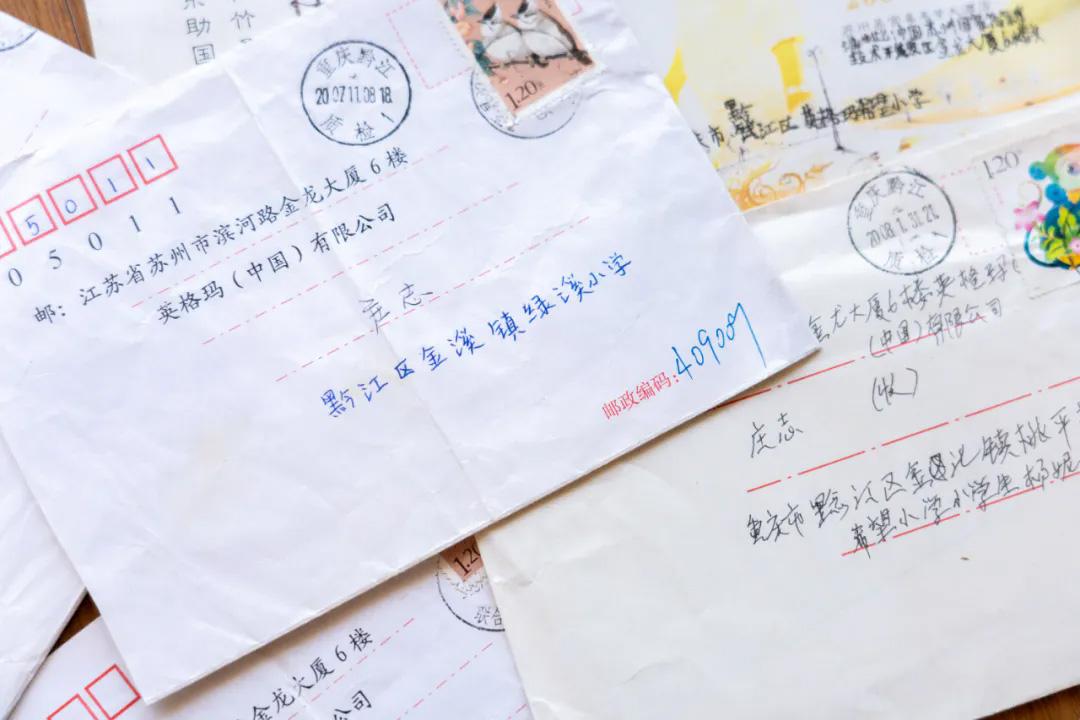 助
国
竹
重庆黔江
2017.11.08.18
质检
1
1.20
5 0 1 1
0 5 0 1 1
邮：江苏省苏州市滨河路金龙大厦6楼
英格玛（中国）有限公司
庄志
黔江区金溪镇绿溪小学
邮政编码：409009
黔
江区 英格玛希望小学
重庆黔江
质检
1.20
金龙大厦6楼英格玛
（中国）有限公司
（收）
庄志
重庆市黔江区金溪镇桃平
希望小学小学生杨妮
1.20
金龙大厦6楼
公司